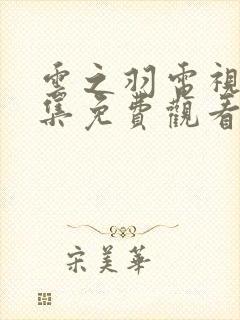 雲之羽電視
集免費觀看
宋美華